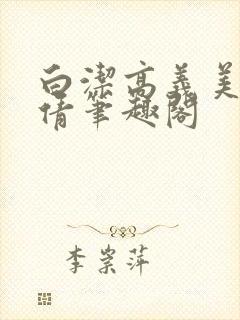 白潔高義美
倩筆趣閣
李崇萍